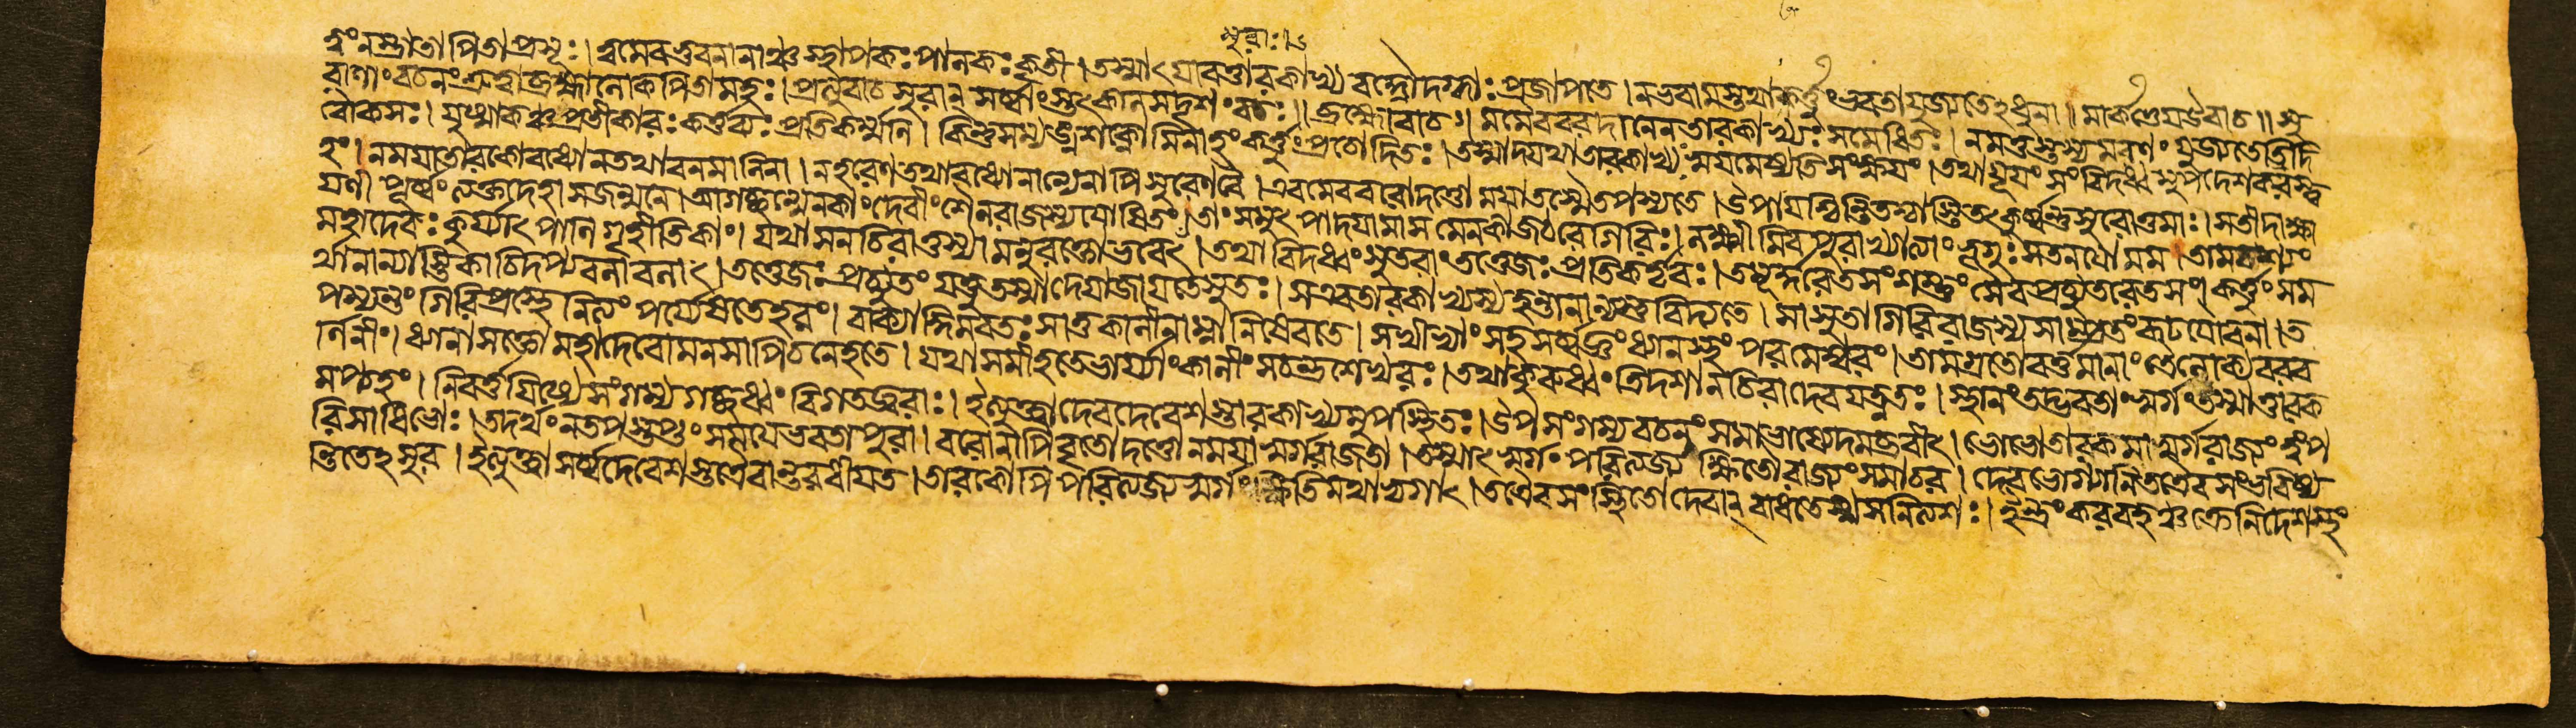 ত্বং নস্ত্রাতা পিতা প্রসূঃ। ত্বমেব ভুবনানাঞ্চ স্থাপকঃ পালকঃ কৃতী। তস্মাৎ যাবত্তারকাখ্য বহ্নৌ দগ্ধাঃ প্রজাপতে। ন ভবামস্তথা কর্ত্তুং ভবতা যুজ্যতেঽধুনা॥ মার্কণ্ডেয় উবাচ॥ সু
সুরাঃ।
রাণাং বচনং শ্রুত্বা ব্রহ্মা লোকপিতামহঃ। প্রত্যুবাচ সুরান্ সর্ব্বাংস্তৎকাল সদৃশং বচঃ॥ ব্রহ্মোবাচ॥ মমৈব বরদানেন তারকাখ্যঃ সমেধিতঃ। ন মত্তস্তস্য মরণং যুজ্যতে ত্রিদি
বৌকসঃ। যুষ্মাকঞ্চ প্রতীকারঃ কর্ত্তব্যঃ প্রতিকর্ম্মনি। কিন্তু সম্যঙ্ন শক্নোমি নাহং কর্ত্তুং প্রচোদিতঃ। তস্মাদ্যথা তারকাখ্যঃ স্বয়মেষ্যতি সংক্ষয়ং। তথা যূয়ং সংবিদধ্বমুপদেশকরস্ত্ব
হং। ন ময়া তারকো বধ্যো ন তথা বনমালিনা। ন হরেণ তথা বধ্যো নান্যেনাপি সুরেণ বৈ। এবমেব বরো দত্তো ময়া তস্মৈ তপস্যতে। উপায়শ্চিন্তিতশ্চাস্তি তৎ কুর্ব্বন্তু সুরোত্তমাঃ। সতী দাক্ষা
য়ণী পূর্ব্বং ত্যক্তদেহা স্বজন্মনে। আগচ্ছন্মেনকাং দেবীং শৈলরাজস্য যোষিতং। তাং সমুৎপাদয়ামাস মেনকাজঠরে গিরিঃ। লক্ষ্মীমিব পুরা খ্যাত্যাং ভৃগুঃ স তনয়ো মম। তামবশ্যং
মহাদেবঃ কুর্য্যাৎ পাণিগৃহীতিকাং। যথা স ন চিরাত্তস্যামনুরক্তো ভবেৎ। তথা বিদধ্বং সুতরাং তত্তেজঃ প্রতিকর্ত্তৃ বঃ। তমূর্দ্ধরেতসং শম্ভুং সৈব প্রচ্যুতরেতসং কর্ত্তুং সম
র্থা নান্যাস্তি কাচিদপ্যবলাবলাৎ। তত্তেজঃ প্রচ্যুতং যত্তু তস্মাদেয়া জায়তে সুতঃ। স এব তারকাখ্যস্য হন্তা নান্যস্তু বিদ্যতে। সা সুতা গিরিরাজস্য সাম্প্রতং রূঢযৌবনা। ত
পস্যন্তং গিরিপ্রস্থে নিত্যং পর্য্যেষতে হরং। বাক্যাদ্ধিমবতঃ সা তু কালীনাম্নী নিষেবতে। সখীভ্যাং সহ সর্ব্বজ্ঞং ধ্যানস্থং পরমেশ্বরং। তামগ্রতো বর্ত্তমানাং ত্রৈলোক্যবরব
র্ণিনীং। ধ্যানাসক্তো মহাদেবো মনসাপি চ নেহতে। যথা সমীহতে ভার্য্যাং কালীং স চন্দ্রশেখরঃ। তথা কুরুধ্বং ত্রিদশা ন চিরাদেব যত্নতঃ। স্থানং তদ্ভবতাং স্বর্গং তস্মাত্তারক
মপ্যহং। নিবর্ত্তয়িষ্যে সংগম্য গচ্ছধ্বং বিগতজ্বরাঃ। ইত্যুক্ত্বা দেবদেবেশস্তারকাখ্যমুপস্থিতঃ। উপসংগম্য বচনং সমাভাষ্যেদমব্রবীৎ। ভো ভো তারক মা স্বর্গরাজ্যং ত্বং প
রিসাধি ভোঃ। তদর্থং ন তপস্তপ্তং সময়ে ভবতা পুরা। বরো নাপি বৃতো দত্তো ন ময়া স্বর্গরাজতা। তস্মাৎ স্বর্গং পরিত্যজ্য ক্ষিতৌ রাজ্যং সমাচর। দেবভোগ্যানি তত্রৈব সংভবিষ্য
ন্তি তেঽসুর। ইত্যুক্ত্বা সর্ব্বদেবেশস্তত্রৈবান্তরধীয়ত। তারকোঽপি পরিত্যজ্য স্বর্গং ক্ষিতিমথাভ্যগাৎ। তত্রৈব সংস্থিতো দেবান্ বাধতে স্ম স নিত্যশঃ। ইন্দ্রং করবহঞ্চক্রে নিদেশস্থং